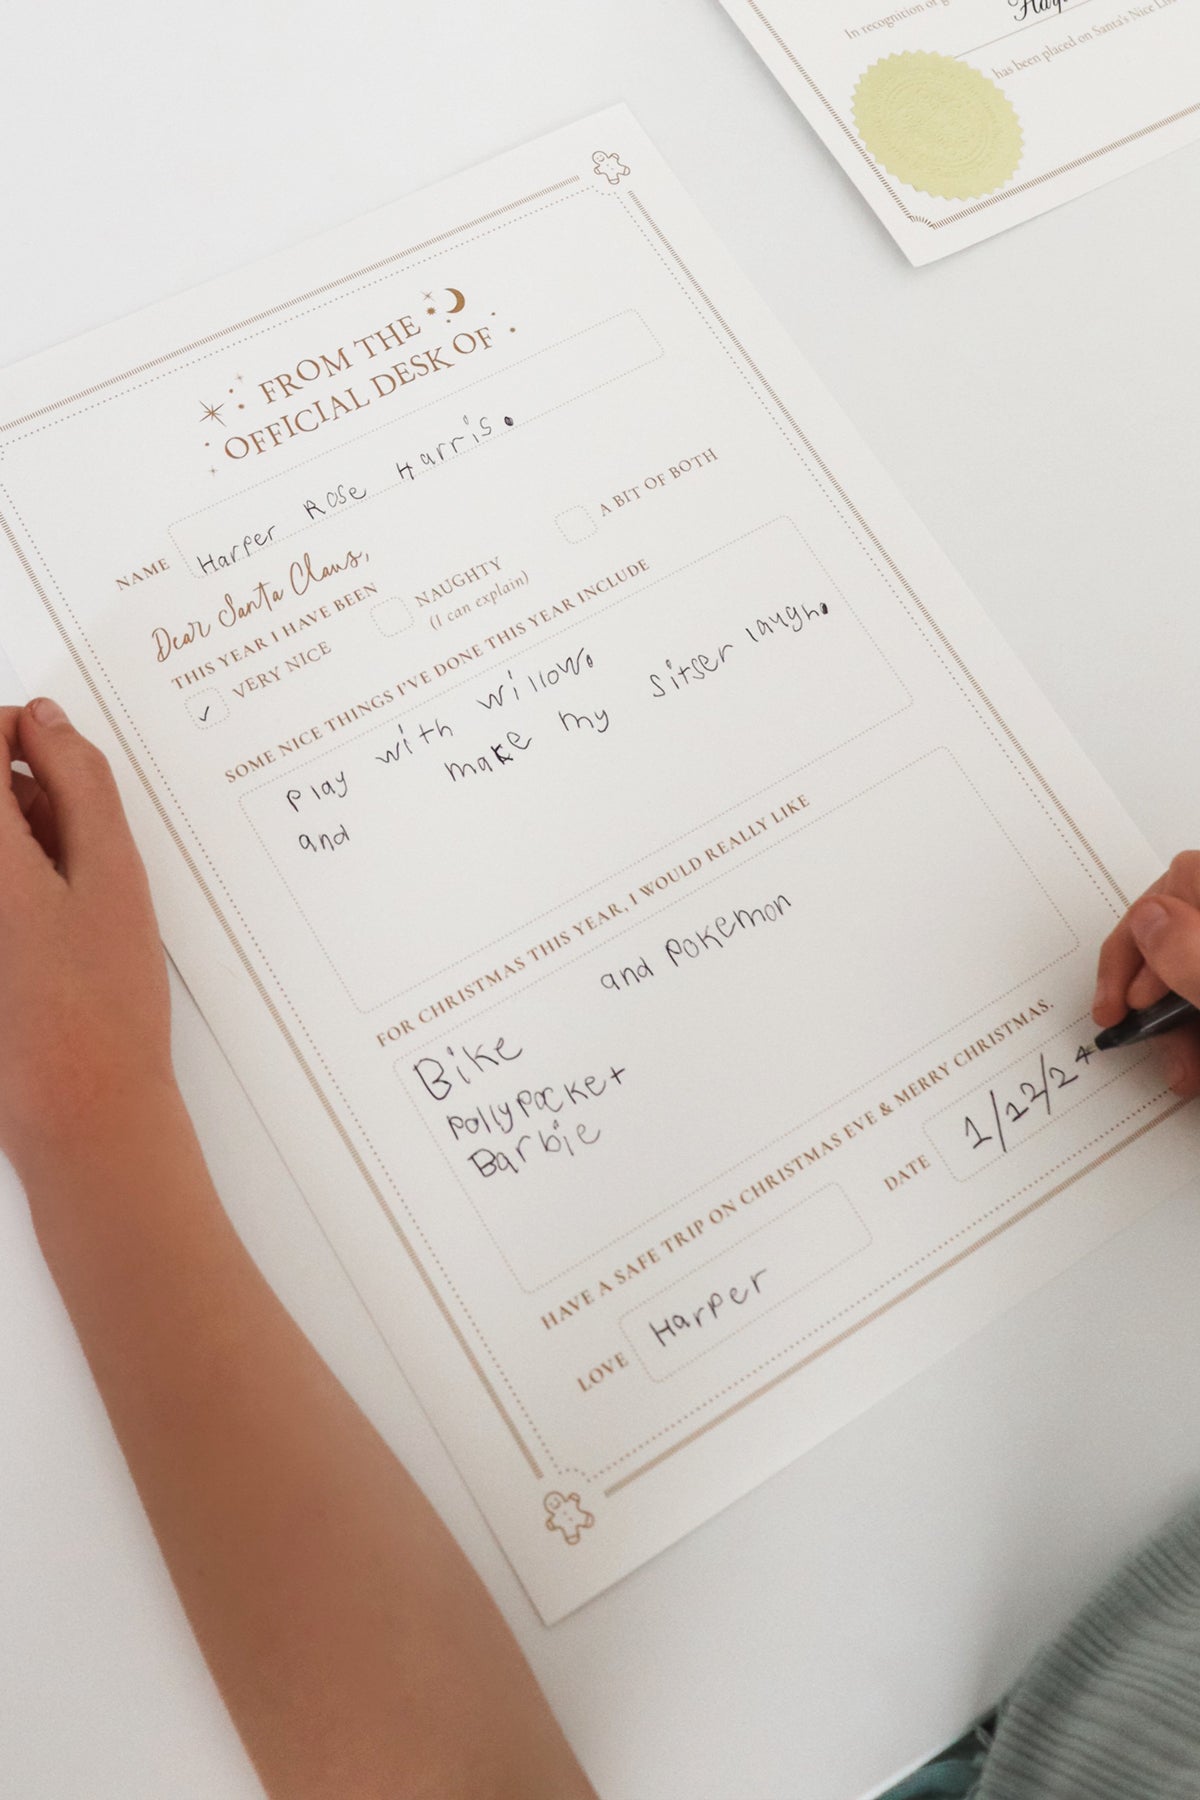 In recognition of
has been placed on Santa's Nice
FROM THE
OFFICIAL DESK OF
NAME Harper Rose Harris.
Dear Santa Claus,
THIS YEAR I HAVE BEEN
VERY NICE
NAUGHTY
(I can explain)
A BIT OF BOTH
SOME NICE THINGS I'VE DONE THIS YEAR INCLUDE
Play with willow.
and make my sitser laugh.
FOR CHRISTMAS THIS YEAR, I WOULD REALLY LIKE
Bike and pokemon
pollypocket
Barbie
HAVE A SAFE TRIP ON CHRISTMAS EVE & MERRY CHRISTMAS.
LOVE Harper
DATE 1/12/24